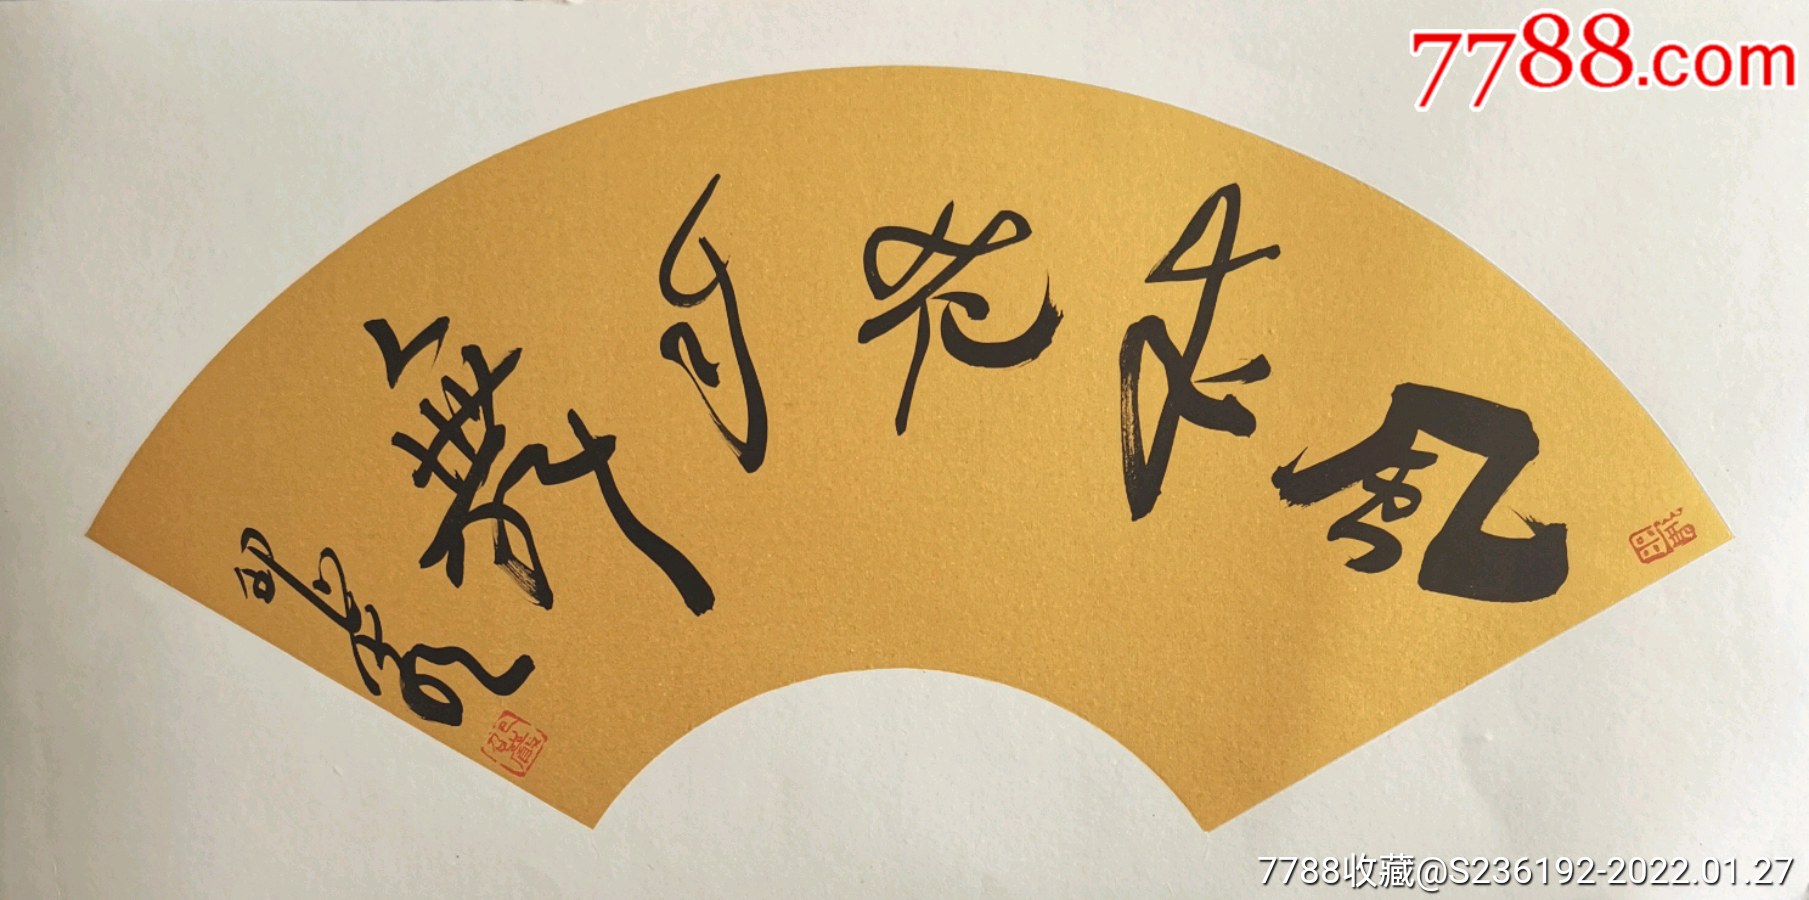 7788.com
风来花自舞
7788收藏@S236192-2022.01.27